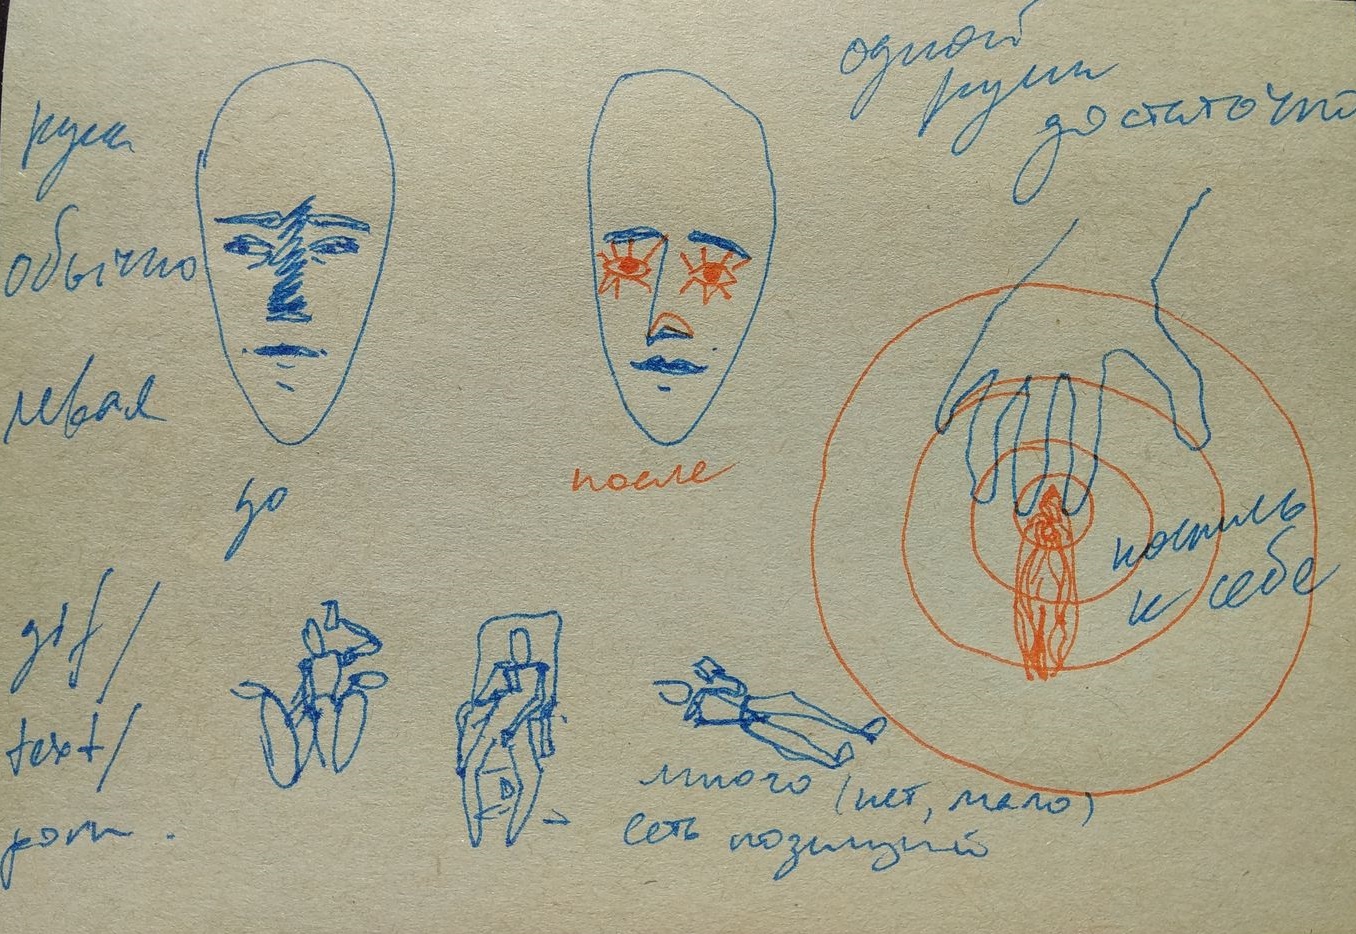 рука
обычно
левая
до
после
одной
руки
достаточно
костыль
к себе
gif/
text/
porn.
много (нет, мало)
есть позиций